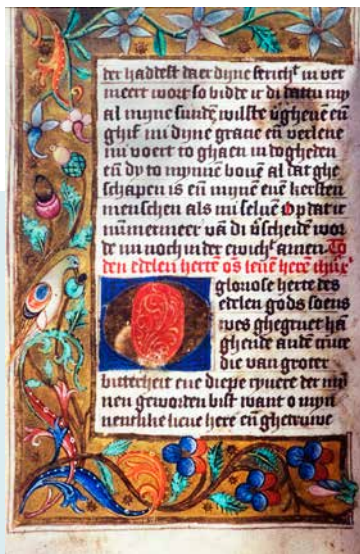 der haddest daer dijne sericht in ver
meert wort so bidde ic di dattu my
al myne sunde wilste vgheue eñ
ghif mi dijne gracie eñ verlene
mi voert to ghaen in dogheden
eñ dy to mynne bouē al dat ghe
schapen is eñ mynē euē kersten
menschen als mi seluē Op dat ic
nūmermeer vā di vscheidē wor
de nu noch in der ewicht amen To
den edelen hertē os leuē herē
O gloriose herte des
edelen gods soens
wes ghegruet hā
ghende an dē cruce
die van groter
bitterheit eñ diepe der my
nen geworden bist want o myn
lieue here eñ ghetruwe